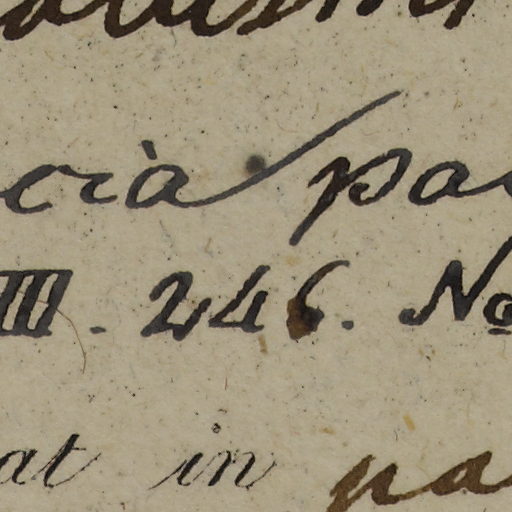 cià pa
III. 246. No
at in pa